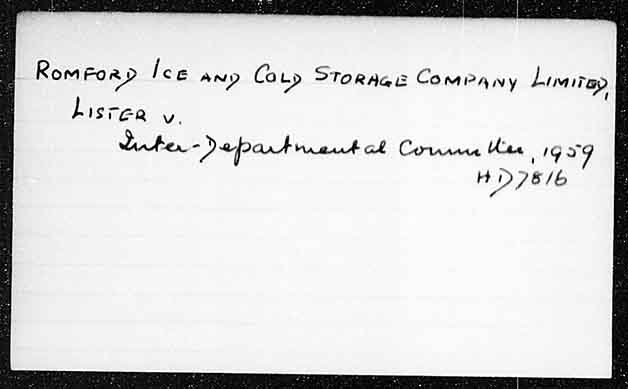 ROMFORD ICE AND COLD STORAGE COMPANY LIMITED,
LISTER V.
Inter-Departmental Committee, 1959
HD7816